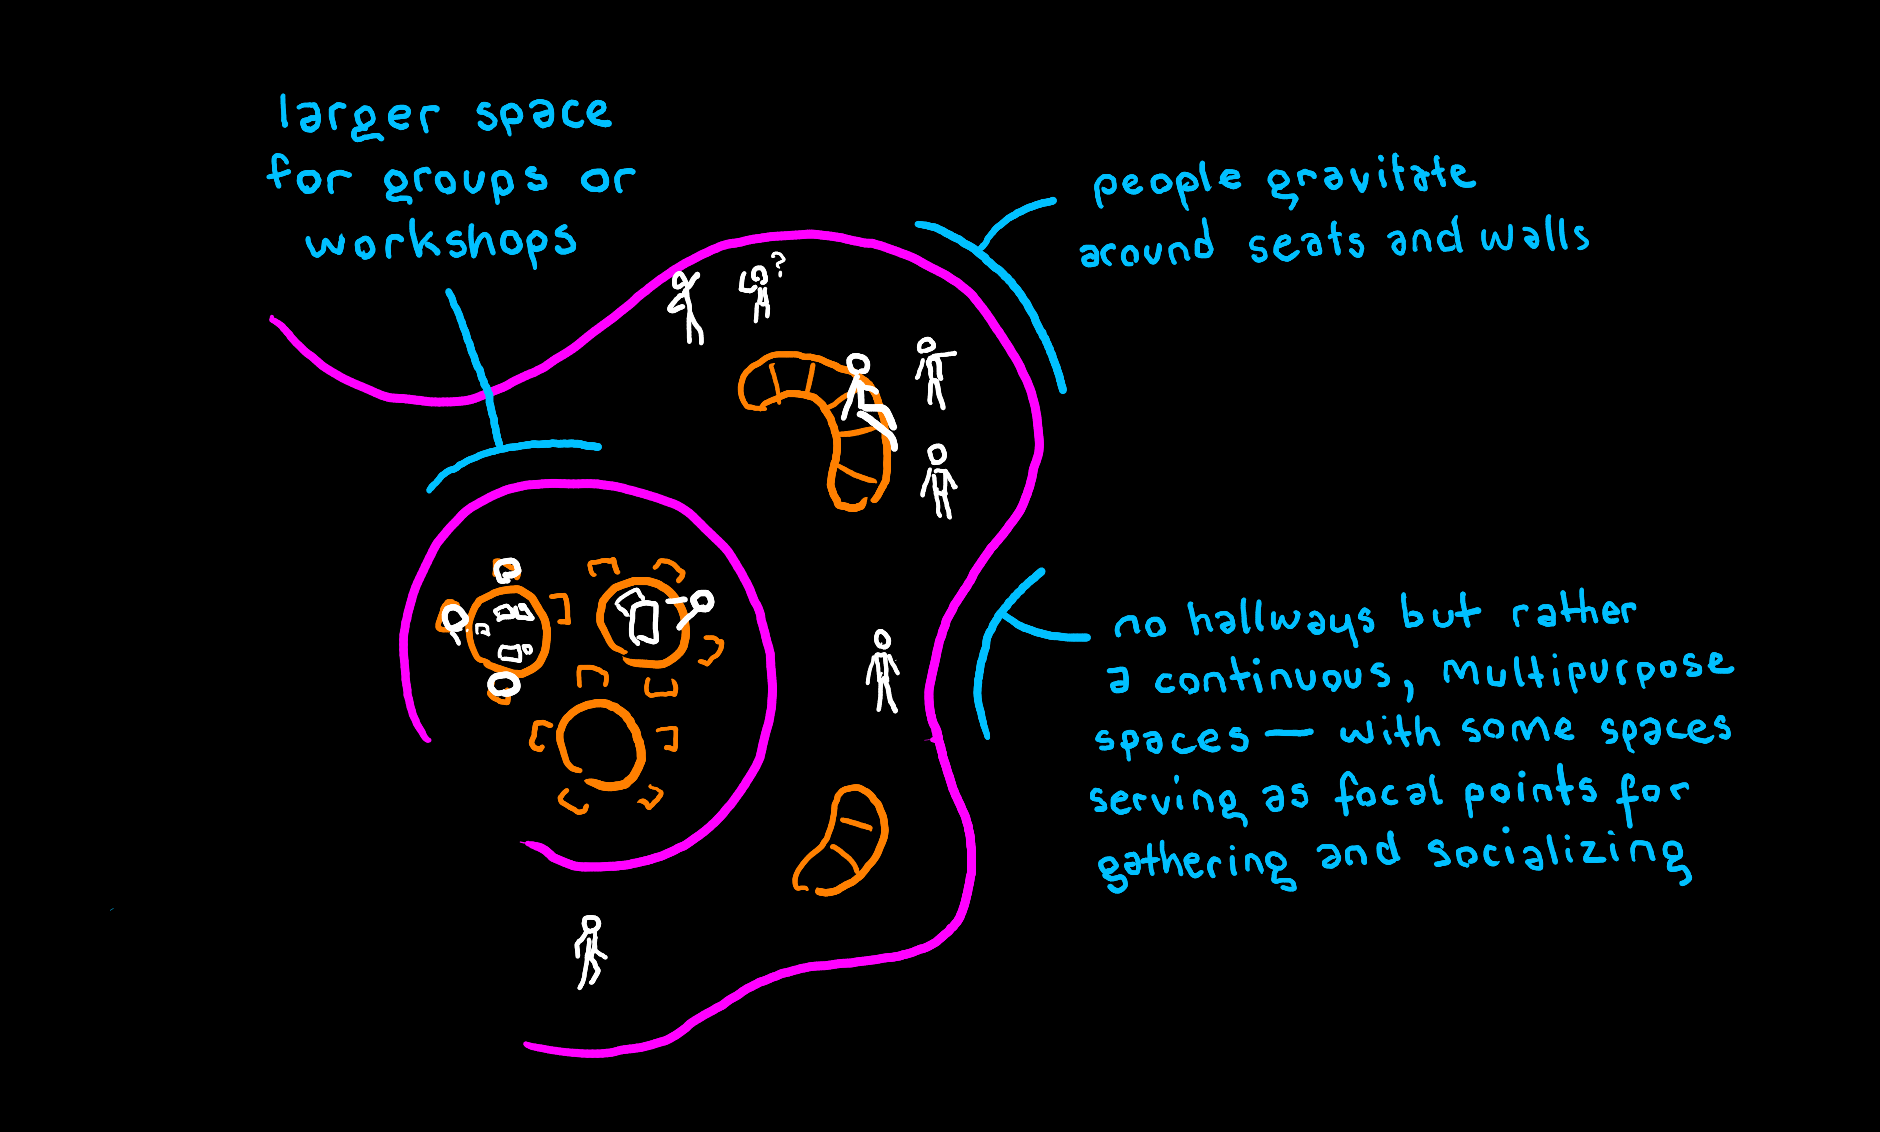 larger space
for groups or
workshops
people gravitate
around seats and walls
?
no hallways but rather
a continuous, multipurpose
spaces — with some spaces
serving as focal points for
gathering and socializing